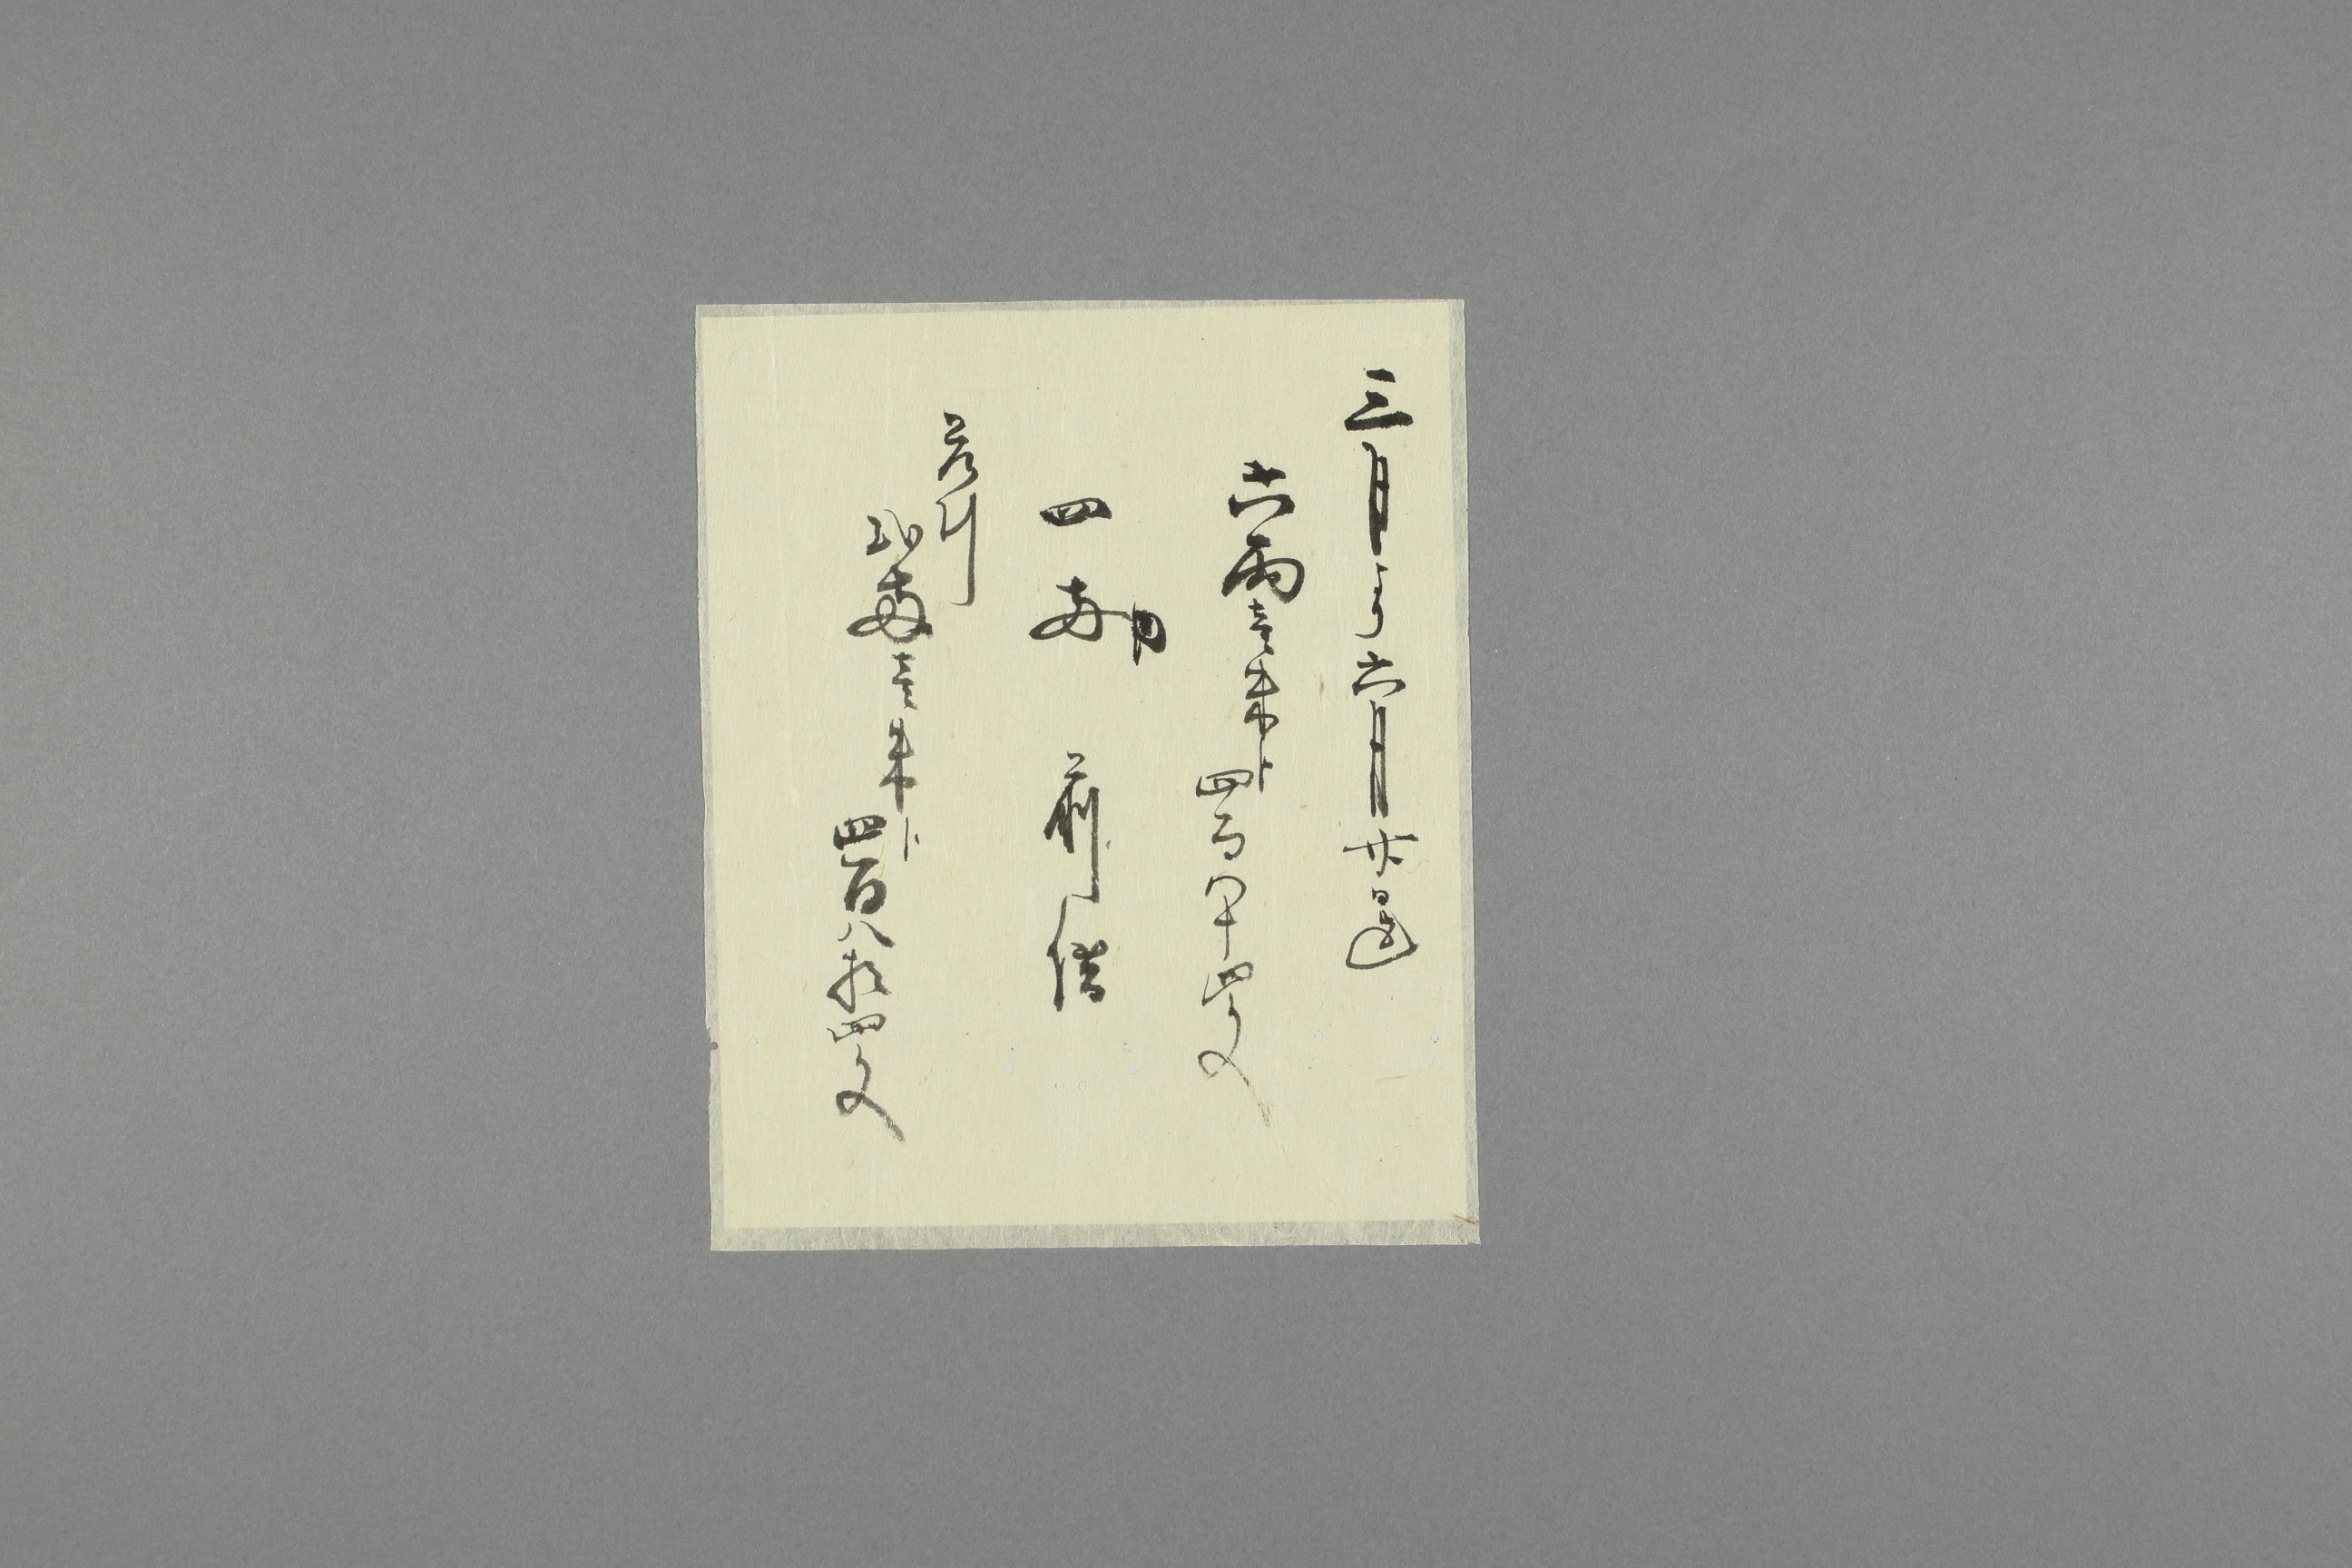 三月より六月廿日迄
六両壱朱ト四百八十四文
内
四両 前借
差引
弐両壱朱ト四百八拾四文